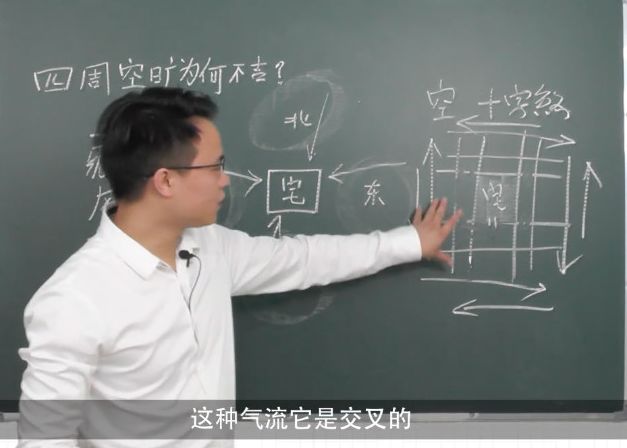 四周空旷为何不吉?
北
空 十字煞
宅
东
宅
这种气流它是交叉的